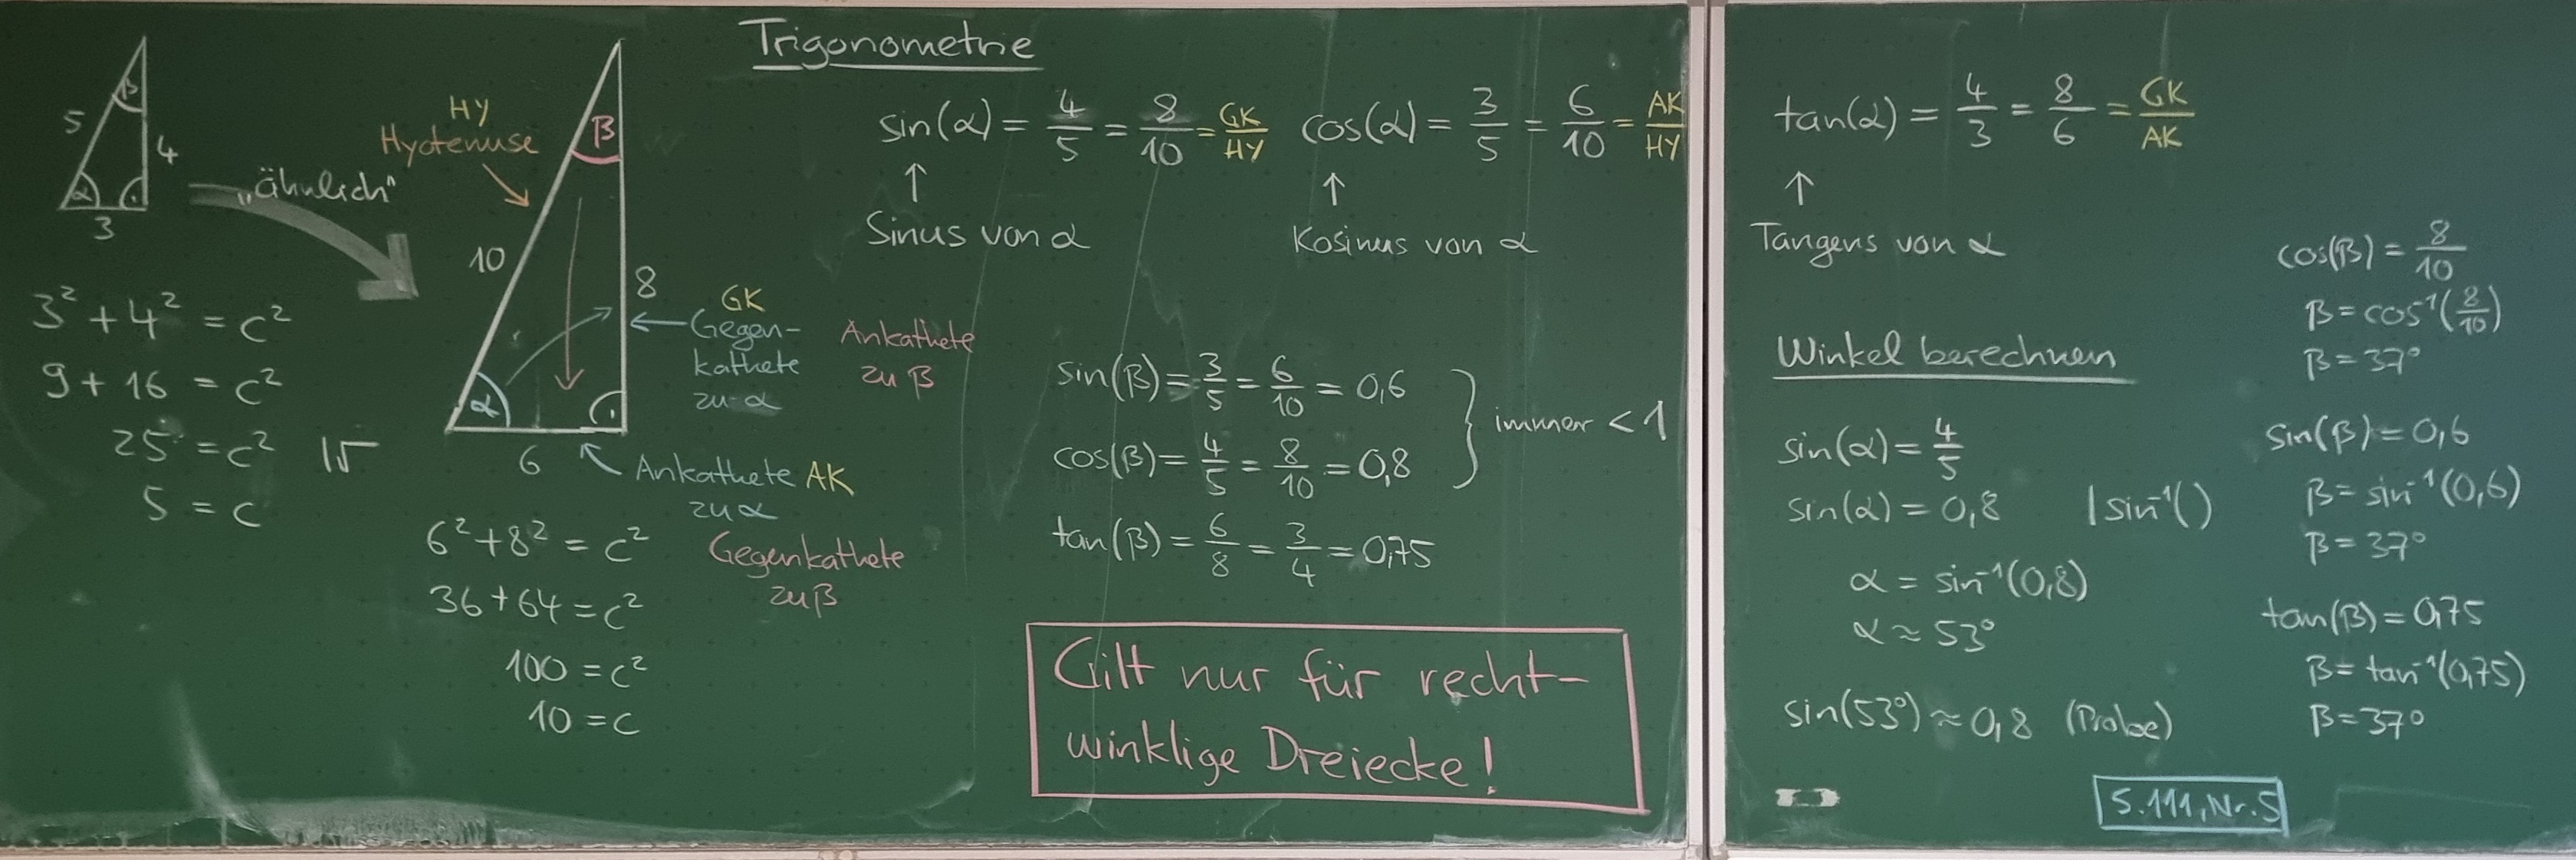 Trigonometrie
5
β
4
α
3
„ähnlich"
3² + 4² = c²
9 + 16 = c²
25 = c² |√
5 = c
HY
Hyotenuse
β
10
8
α
6
GK
Gegen-
kathete
zu α
Ankathete
zu β
Ankathete AK
zu α
Gegenkathete
zu β
6² + 8² = c²
36 + 64 = c²
100 = c²
10 = c
sin(α) = 4/5 = 8/10 = GK/HY
↑
Sinus von α
cos(α) = 3/5 = 6/10 = AK/HY
↑
Kosinus von α
sin(β) = 3/5 = 6/10 = 0,6
cos(β) = 4/5 = 8/10 = 0,8
} immer < 1
tan(β) = 6/8 = 3/4 = 0,75
Gilt nur für recht-
winklige Dreiecke!
tan(α) = 4/3 = 8/6 = GK/AK
↑
Tangens von α
Winkel berechnen
sin(α) = 4/5
sin(α) = 0,8 | sin⁻¹()
α = sin⁻¹(0,8)
α ≈ 53°
sin(53°) ≈ 0,8 (Probe)
cos(β) = 8/10
β = cos⁻¹(8/10)
β = 37°
sin(β) = 0,6
β = sin⁻¹(0,6)
β = 37°
tan(β) = 0,75
β = tan⁻¹(0,75)
β = 37°
S.111, Nr.5